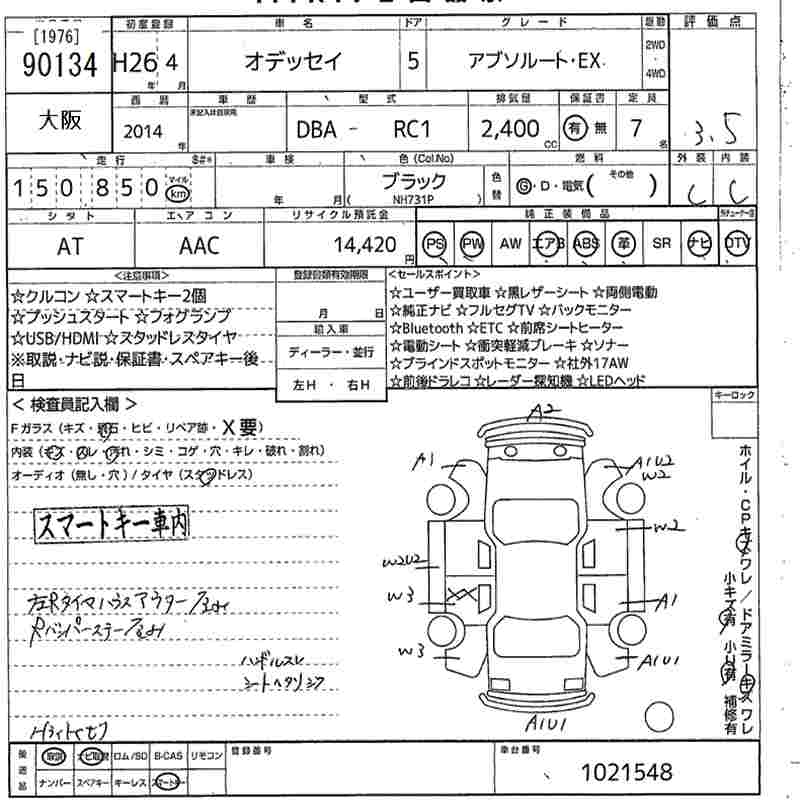 [1976]
90134
初度登録 車名 ドア グレード 駆動 評価点
H26年 4月 オデッセイ 5 アブソルート・EX 2WD・4WD
大阪
西暦 車歴 型式 排気量 保証書 定員
未記入は自家用
2014年 DBA - RC1 2,400CC 有 無 7名 3.5
走行 S#* 車検 色(Col.No) 燃料 外装 内装
150850 マイル km 年 月 ブラック (NH731P) 色替 G・D・電気(その他) C C
シフト エアコン リサイクル預託金 純正装備品
AT AAC 14,420円 PS PW AW エアB ABS 革 SR ナビ DTV
<注意事項> 登録書類有効期限 <セールスポイント>
☆クルコン ☆スマートキー2個
☆プッシュスタート ☆フォグランプ
☆USB/HDMI ☆スタッドレスタイヤ
※取説・ナビ説・保証書・スペアキー後
日
月 日
輸入車
ディーラー・並行
左H ・ 右H
☆ユーザー買取車 ☆黒レザーシート ☆両側電動
☆純正ナビ ☆フルセグTV ☆バックモニター
☆Bluetooth ☆ETC ☆前席シートヒーター
☆電動シート ☆衝突軽減ブレーキ ☆ソナー
☆ブラインドスポットモニター ☆社外17AW
☆前後ドラレコ ☆レーダー探知機 ☆LEDヘッド
キーロック
< 検査員記入欄 >
Fガラス (キズ・飛石・ヒビ・リペア跡・X要)
内装 (キズ・スレ・汚れ・シミ・コゲ・穴・キレ・破れ・割れ)
オーディオ (無し・穴) / タイヤ (スタッドレス)
スマートキー車内
ハンドルスレ
A2
A1
A1U2
W2
W2
W2U2
W3
A1
W3
A1U1
A1U1
ホイル・CPキズワレ/ドアミラーキズワレ
小キズ有 小U有 補修有
後送品 取説 ナビ取説 ロム/SD B-CAS リモコン 登録番号 車台番号
ナンバー スペアキー キーレス スマートキー 1021548